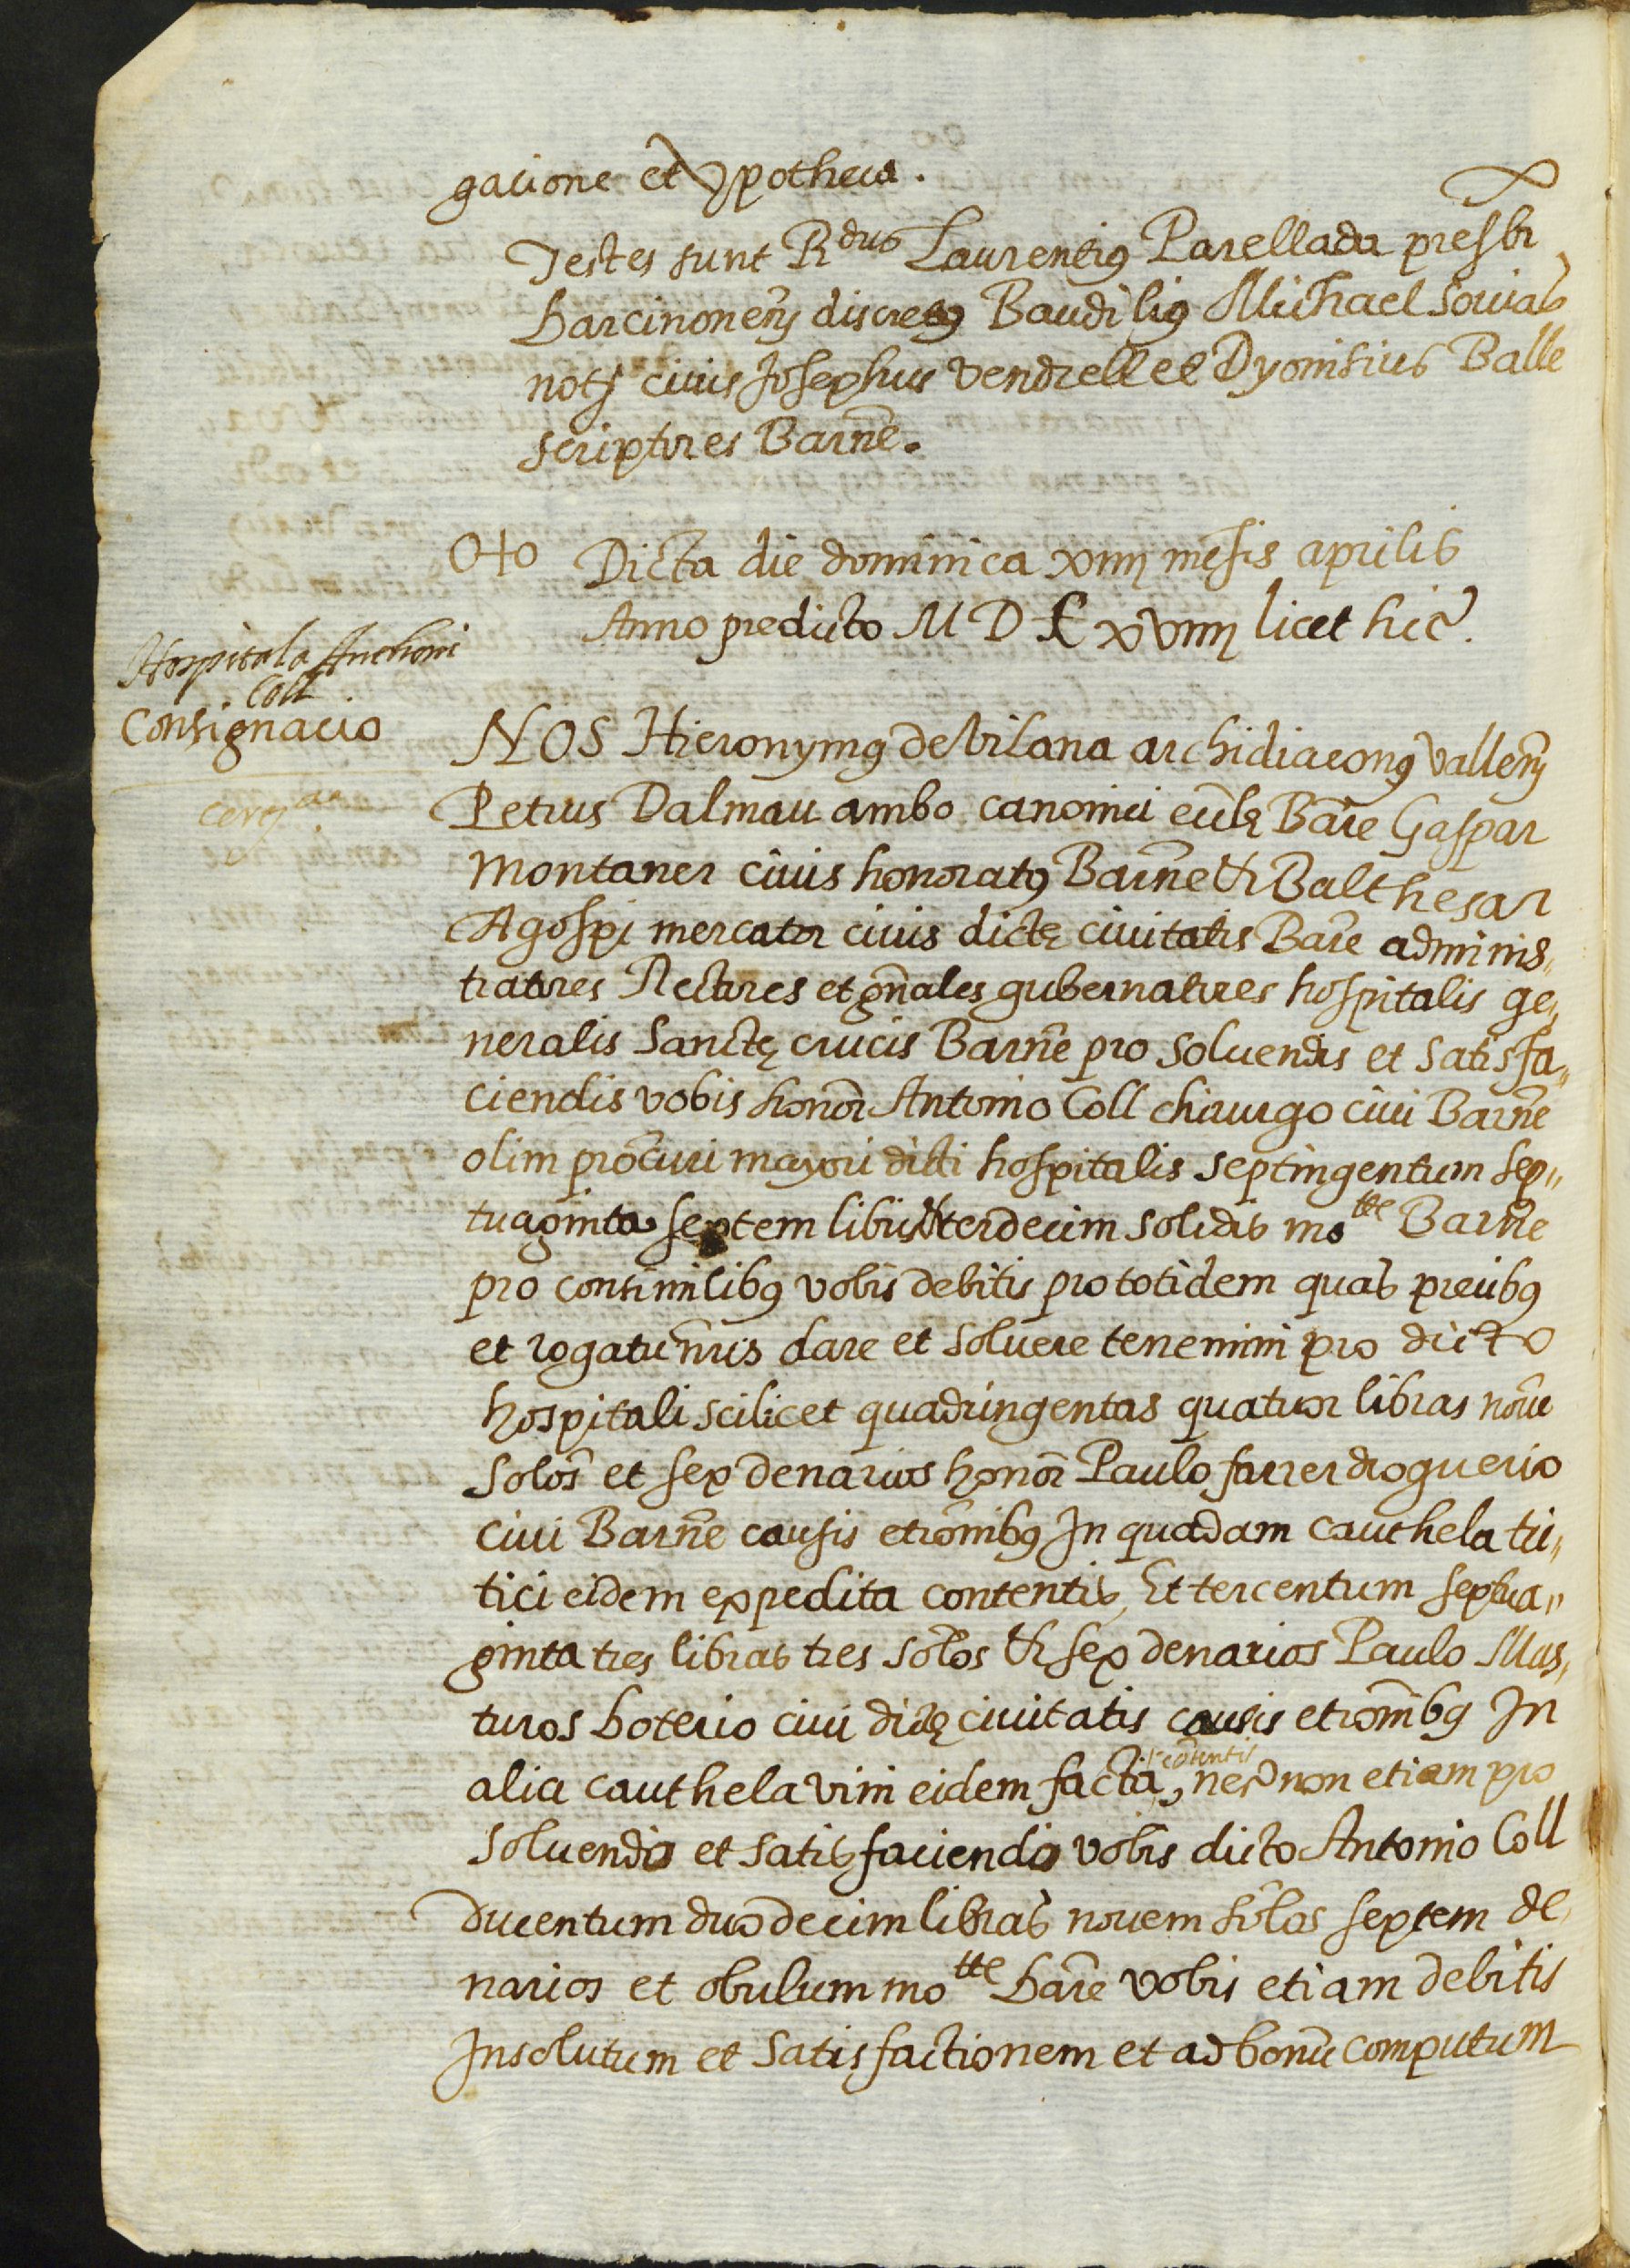 gacione et ypotheca.
Testes sunt Rdus Laurentiꝰ Parellada presbr
barcinoneñ discretꝰ Baudiliꝰ Michael Sovias
notꝰ ciuis Josephus vendrell et Dyonisius Balle
scriptores Barñe.
Dicta die dominica xiiij mẽsis aprilis
Anno predicto M D L xviiij licet hic.
Hospitala Anthoni
Coll
Consignacio
NOS Hieronymꝰ de Vilana archidiaconꝰ Valleñ
Petrus Dalmau ambo canonici eccłę Bãre Gaspar
Montaner ciuis honoratꝰ Barñe et Balthesar
Agospi mercator ciuis dictę ciuitatis Bãre adminis„
tratores Rectores et gñales gubernatores hospitalis ge„
neralis Sanctę crucis Barñe pro soluendis et satisfa„
ciendis vobis honor̃ Antonio Coll chirurgo ciui Barñe
olim procũri mayori dicti hospitalis septingentum sep„
tuaginta septem libris et terdecim solidis motte Barñe
pro consimilibꝰ vobis debitis pro totidem quas precibꝰ
et rogatu nr̃is dare et soluere tenemini pro dicto
hospitali scilicet quadringentas quatuor libras nouẽ
solõs et sex denarios honor̃ Paulo farrer droguerio
ciui Barñe causis et rõnibꝰ In quadam cauthela tu„
tici eidem expedita contentis, Et tercentum septua„
ginta tres libras tres sol̃os et sex denarios Paulo Mas„
turos boterio ciui dictę ciuitatis causis et rõnibꝰ In
alia cauthela vini eidem facta contentis, nec non etiam pro
soluendo et satisfaciendo vobis dicto Antonio Coll
ducentum duodecim libras nouem sol̃os septem de„
narios et obulum motte bãre vobis etiam debitis
Insolutum et satisfactionem et ad bonũ computum